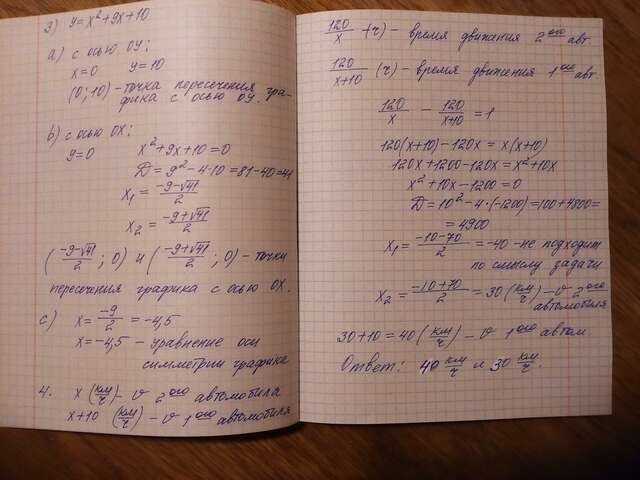 3) y=x²+9x+10
a) с осью OY:
x=0 y=10
(0;10) - точка пересечения гра-
фика с осью OY.
b) с осью OX:
y=0 x²+9x+10=0
D=9²-4·10=81-40=41
x₁= (-9-√41)/2
x₂= (-9+√41)/2
((-9-√41)/2; 0) и ((-9+√41)/2; 0) - точки
пересечения графика с осью OX.
c) x= -9/2 = -4,5
x=-4,5 - уравнение оси
симметрии графика
4. x (км/ч) - v 2ого автомобила
x+10 (км/ч) - v 1ого автомобиля
120/x (ч) - время движения 2ого авт
120/(x+10) (ч) - время движения 1ого авт
120/x - 120/(x+10) = 1
120(x+10)-120x = x(x+10)
120x+1200-120x=x²+10x
x²+10x-1200=0
D=10²-4·(-1200)=100+4800=
=4900
x₁= (-10-70)/2 = -40 - не подходит
по смыслу задачи
x₂= (-10+70)/2 = 30 (км/ч) - v 2ого
автомобиля
30+10=40 (км/ч) - v 1ого автом
Ответ: 40 км/ч и 30 км/ч.